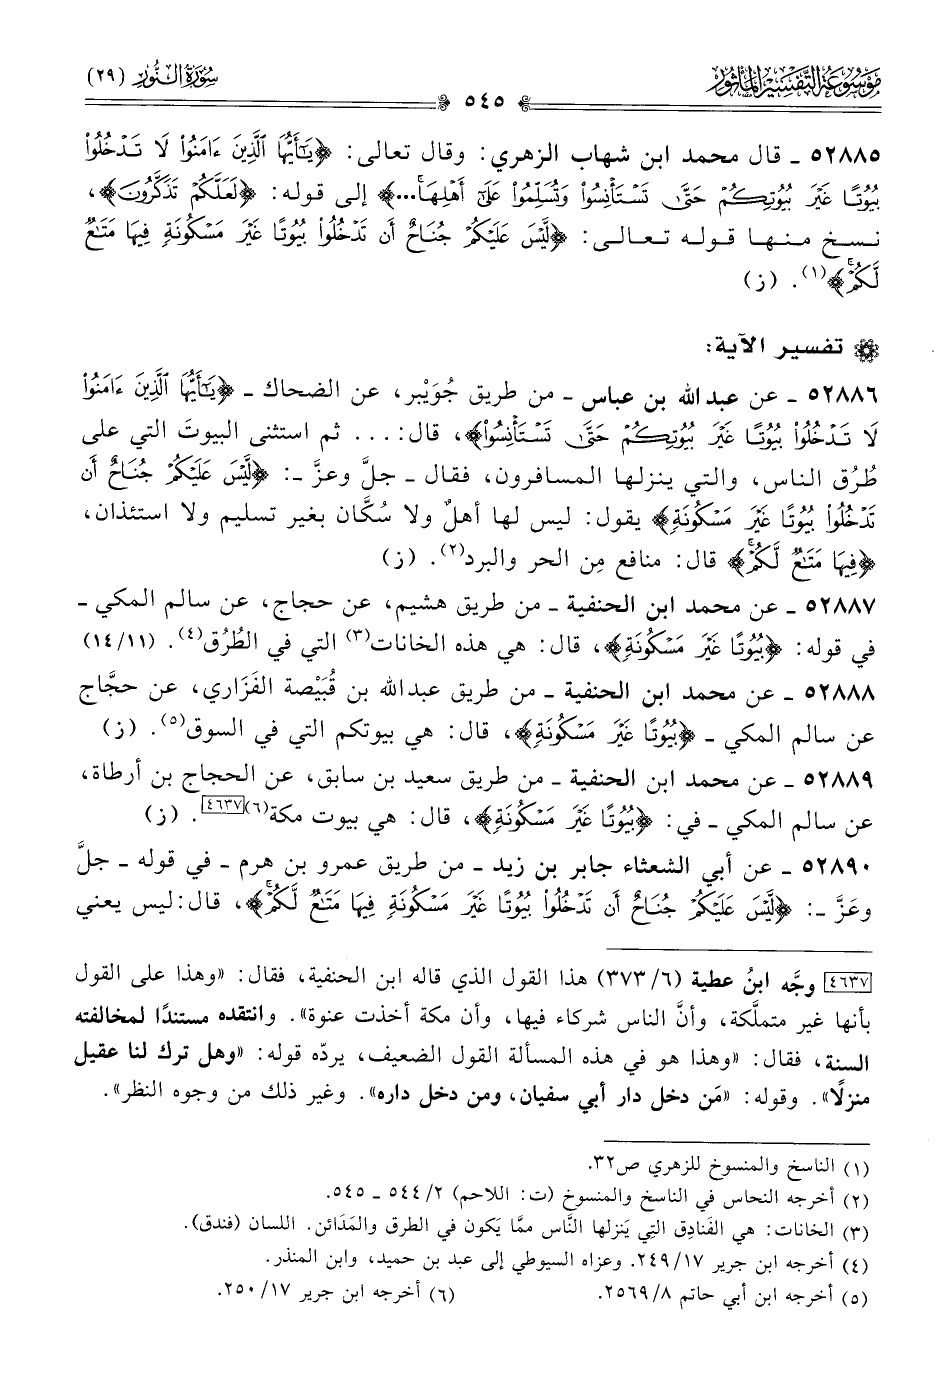 مَوْسُوعَة التَّفْسِيرِ المَأْثُور
سُورَةُ النُّورِ (٢٩)
٥٤٥
٥٢٨٨٥ ـ قال محمد ابن شهاب الزهري: وقال تعالى: ﴿يَٰٓأَيُّهَا ٱلَّذِينَ ءَامَنُوا۟ لَا تَدْخُلُوا۟
بُيُوتًا غَيْرَ بُيُوتِكُمْ حَتَّىٰ تَسْتَأْنِسُوا۟ وَتُسَلِّمُوا۟ عَلَىٰٓ أَهْلِهَا...﴾ إلى قوله: ﴿لَعَلَّكُمْ تَذَكَّرُونَ﴾،
نسخ منها قوله تعالى: ﴿لَّيْسَ عَلَيْكُمْ جُنَاحٌ أَن تَدْخُلُوا۟ بُيُوتًا غَيْرَ مَسْكُونَةٍ فِيهَا مَتَٰعٌ
لَّكُمْ﴾(١). (ز)
تفسير الآية:
٥٢٨٨٦ ـ عن عبد الله بن عباس ـ من طريق جُوَيْبر، عن الضحاك ـ ﴿يَٰٓأَيُّهَا ٱلَّذِينَ ءَامَنُوا۟
لَا تَدْخُلُوا۟ بُيُوتًا غَيْرَ بُيُوتِكُمْ حَتَّىٰ تَسْتَأْنِسُوا۟﴾، قال: ... ثم استثنى البيوتَ التي على
طُرُق الناس، والتي ينزلها المسافرون، فقال ـ جلَّ وعزَّ ـ: ﴿لَّيْسَ عَلَيْكُمْ جُنَاحٌ أَن
تَدْخُلُوا۟ بُيُوتًا غَيْرَ مَسْكُونَةٍ﴾ يقول: ليس لها أهلٌ ولا سُكَّان بغير تسليم ولا استئذان،
﴿فِيهَا مَتَٰعٌ لَّكُمْ﴾ قال: منافع مِن الحر والبرد(٢). (ز)
٥٢٨٨٧ ـ عن محمد ابن الحنفية ـ من طريق هشيم، عن حجاج، عن سالم المكي ـ
في قوله: ﴿بُيُوتًا غَيْرَ مَسْكُونَةٍ﴾، قال: هي هذه الخانات(٣) التي في الطُرُق(٤). (١١/١٤)
٥٢٨٨٨ ـ عن محمد ابن الحنفية ـ من طريق عبد الله بن قُبَيْصة الفَزَاري، عن حجَّاج
عن سالم المكي ـ ﴿بُيُوتًا غَيْرَ مَسْكُونَةٍ﴾، قال: هي بيوتكم التي في السوق(٥). (ز)
٥٢٨٨٩ ـ عن محمد ابن الحنفية ـ من طريق سعيد بن سابق، عن الحجاج بن أرطاة،
عن سالم المكي ـ في: ﴿بُيُوتًا غَيْرَ مَسْكُونَةٍ﴾، قال: هي بيوت مكة(٦)[٤٦٣٧]. (ز)
٥٢٨٩٠ ـ عن أبي الشعثاء جابر بن زيد ـ من طريق عمرو بن هرم ـ في قوله ـ جلَّ
وعَزَّ ـ: ﴿لَّيْسَ عَلَيْكُمْ جُنَاحٌ أَن تَدْخُلُوا۟ بُيُوتًا غَيْرَ مَسْكُونَةٍ فِيهَا مَتَٰعٌ لَّكُمْ﴾، قال: ليس يعني
[٤٦٣٧] وجَّه ابنُ عطية (٦/٣٧٣) هذا القول الذي قاله ابن الحنفية، فقال: «وهذا على القول
بأنها غير متملَّكة، وأنَّ الناس شركاء فيها، وأن مكة أخذت عنوة». وانتقده مستندًا لمخالفته
السنة، فقال: «وهذا هو في هذه المسألة القول الضعيف، يردّه قوله: «وهل ترك لنا عقيل
منزلًا». وقوله: «مَن دخل دار أبي سفيان، ومن دخل داره». وغير ذلك من وجوه النظر».
(١) الناسخ والمنسوخ للزهري ص٣٢.
(٢) أخرجه النحاس في الناسخ والمنسوخ (ت: اللاحم) ٢/ ٥٤٤ ـ ٥٤٥.
(٣) الخانات: هي الفَنادِق التي يَنزلها النَّاس ممَّا يَكون في الطرق والمَدَائن. اللسان (فندق).
(٤) أخرجه ابن جرير ١٧/ ٢٤٩. وعزاه السيوطي إلى عبد بن حميد، وابن المنذر.
(٥) أخرجه ابن أبي حاتم ٨/ ٢٥٦٩.
(٦) أخرجه ابن جرير ١٧/ ٢٥٠.